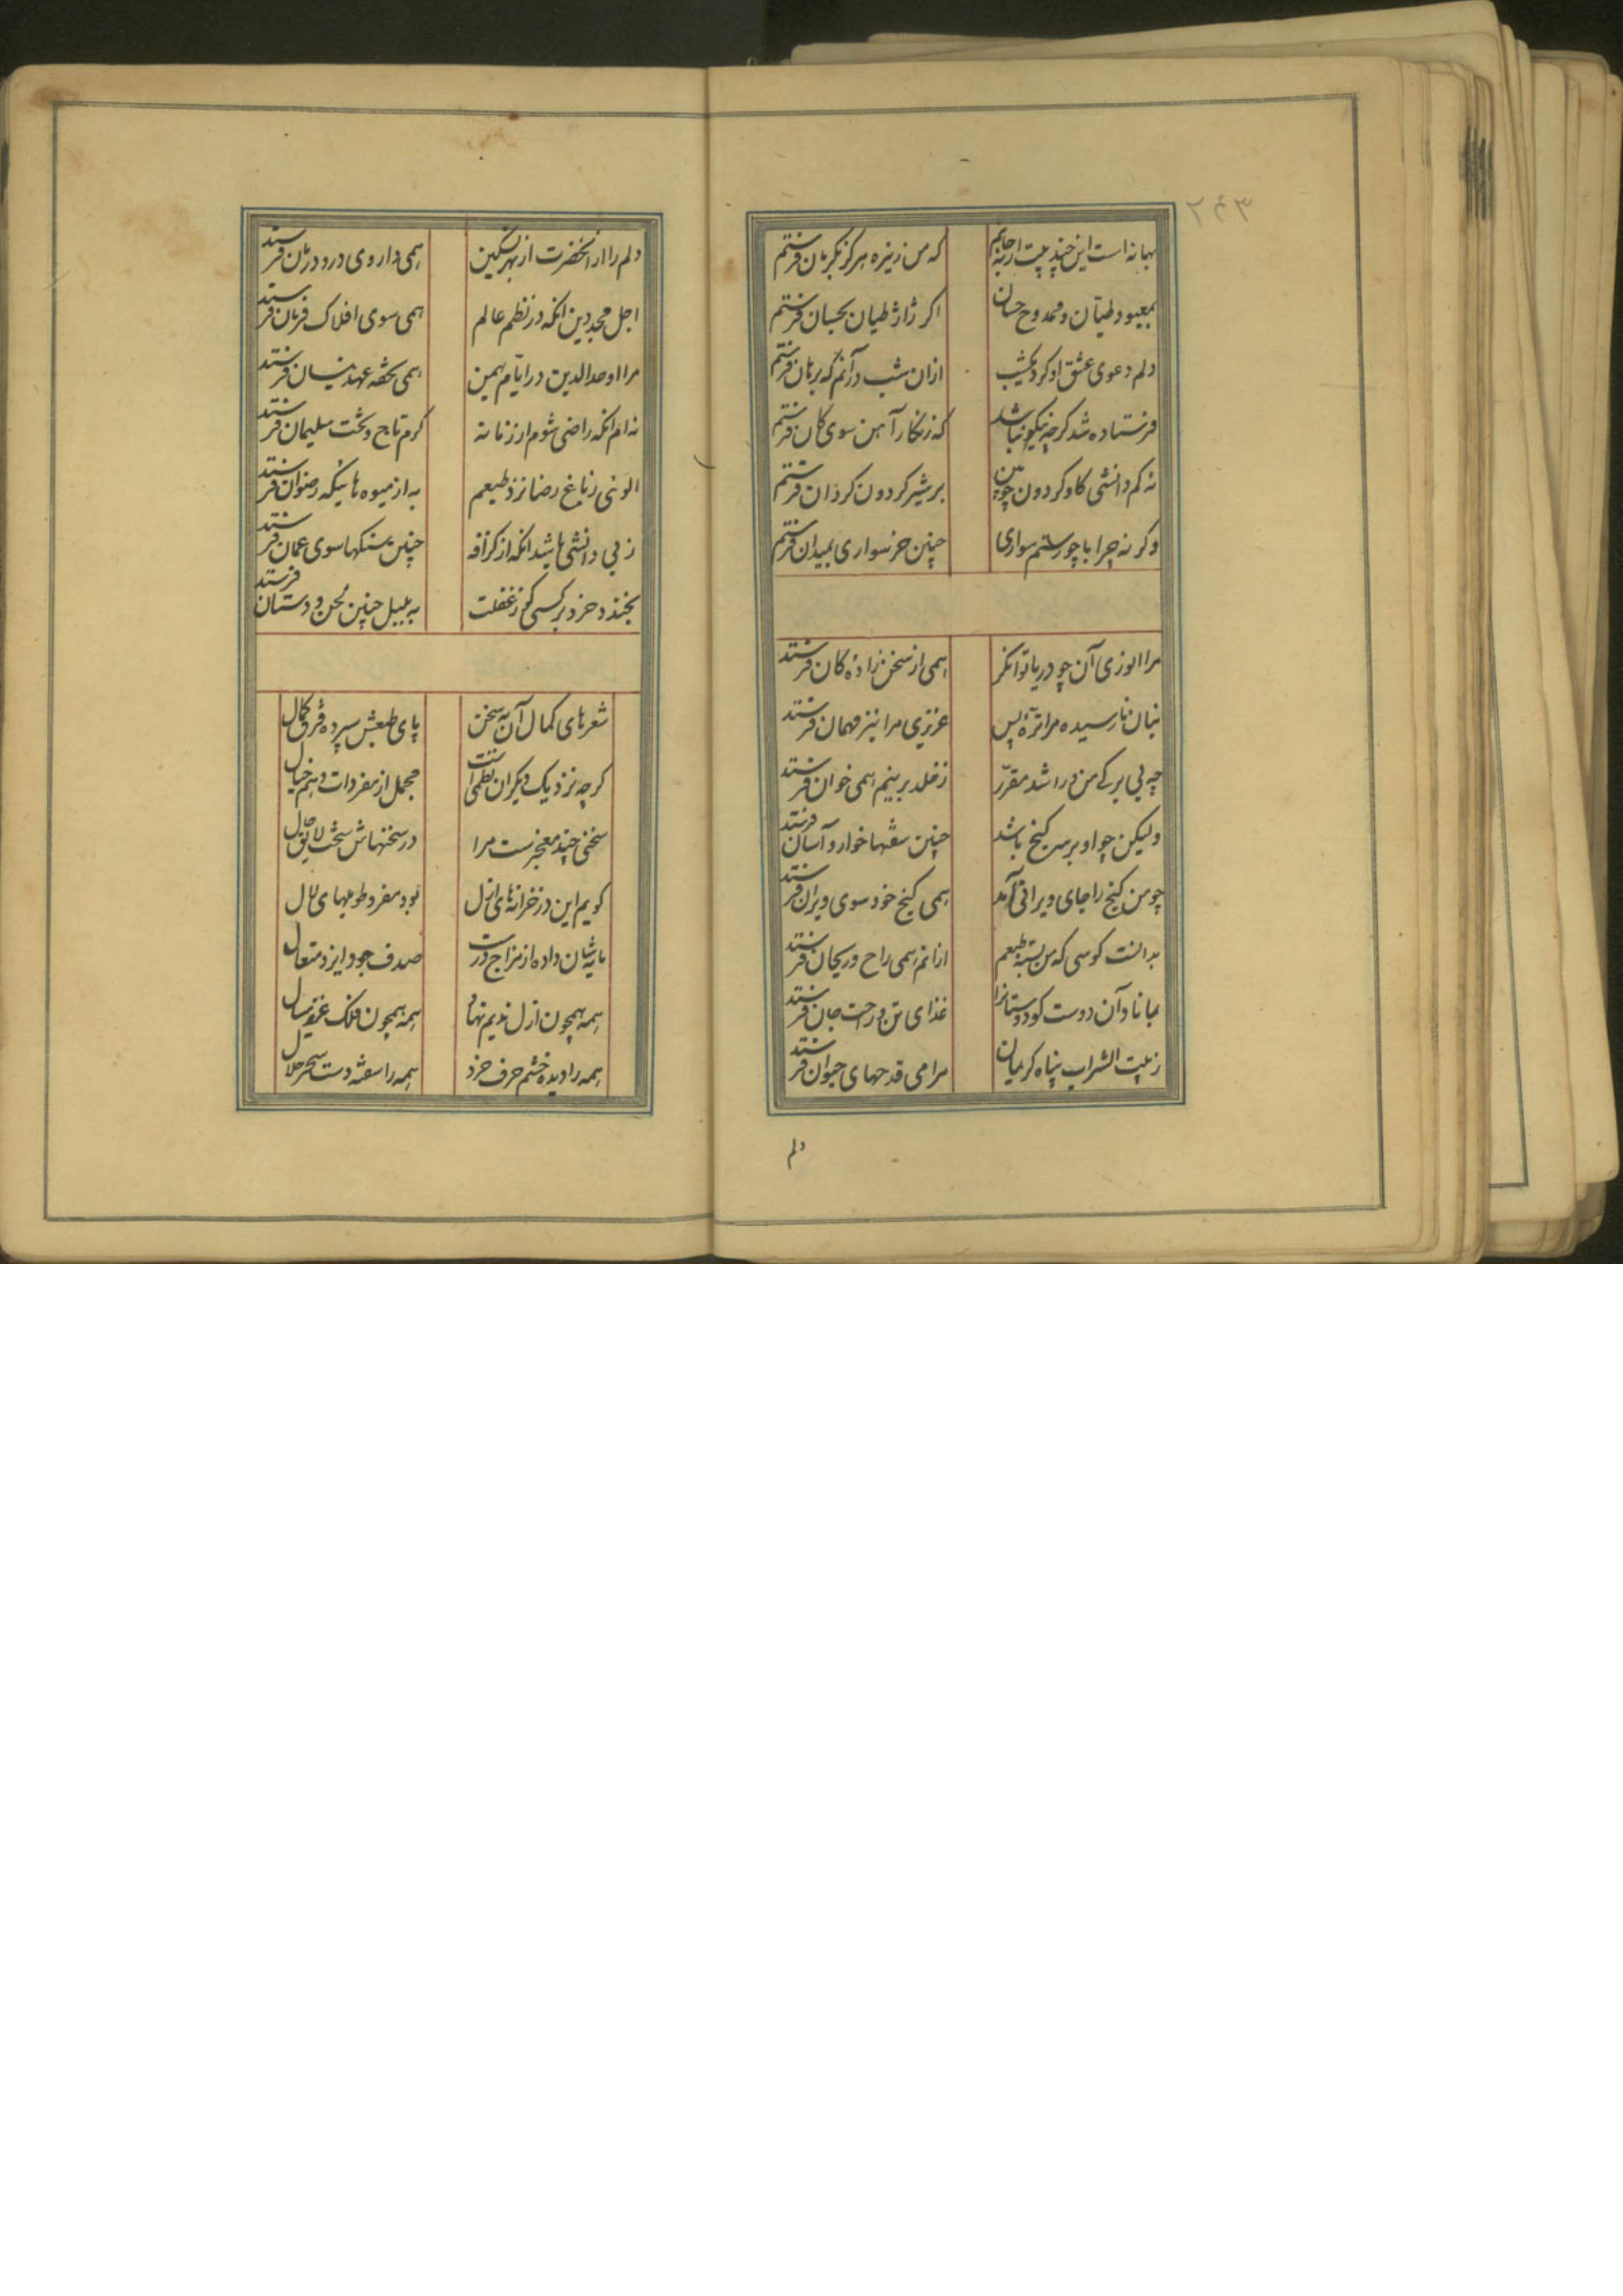 ۲۴۳
بهانه است این چند بیت ارنه حاشم که من زیره هرگز بکرمان فرستم
بمعبود طیان و ممدوح حسان اگر ژاژ طیان بحسان فرستم
دلم دعوی عشق او کرد یکشب ازان شب درآنم که برهان فرستم
فرستاده شد گرچه نیکو نباشد که زنگار آهن سوی کان فرستم
نه کم دانشی کاو گردون چوبین بر شیر گردون گردان فرستم
وکر نه چرا با چو رستم سواری چنین خر سواری بمیدان فرستم
مرا انوری آن چو دریا توانگر همی از سخن زاده کان فرستد
بنان نارسیده مرا تره پس عزیزی مرا نیز مهمان فرستد
چه بی برگی من ورا شد مقرر ز خلد برینم همی خوان فرستد
ولیکن چو او بر سر گنج باشد چنین سفتها خوار و آسان فرستد
چو من گنج را جای ویرانی آمد همی گنج خود سوی ویران فرستد
بدانست گوسی که من بسته طبعم ازانم همی راح و ریحان فرستد
بماناد آن دوست کو دوستانرا غذای تن و راحت جان فرستد
ز بیت الشراب پناه کریمان مرا می قدحهای حیوان فرستد
دلم
دلم را از انحضرت از بهر تسکین همی داروی درد درمان فرستد
اجل مجد دین انکه در نظم عالم همی سوی افلاک فرمان فرستد
مرا اوحد الدین در ایام بهمن همی تحفه عهد نیسان فرستد
نه ام انکه راضی شوم از زمانه کرم تاج و تخت سلیمان فرستد
الوئی ز باغ رضا نزد طبعم به از میوه هائیکه رضوان فرستد
ز بی دانشی باشد انکه از گزافه چنین سنگها سوی عمان فرستد
بخندد خرد بر کسی کو ز غفلت به بلبل چنین لحن و دستان فرستد
شعرهای کمال آن به سخن پای طبعش سپرده فرق کمال
گرچه نزدیک دیگران نظمی است مجمل از مفردات وهم و خیال
سخنی چند معجزست مرا در سخنهاش سخت لایق حال
گویم این در خزانه های ازل بود مفرد طویلهای لال
مایه شان داده از مزاج درست صدف جود ایزد متعال
همه همچون ازل ندیم نهاد همه همچون فلک عزیز مثال
همه را دیده ختم حرف خرد همه را سفته دست سحر حلال